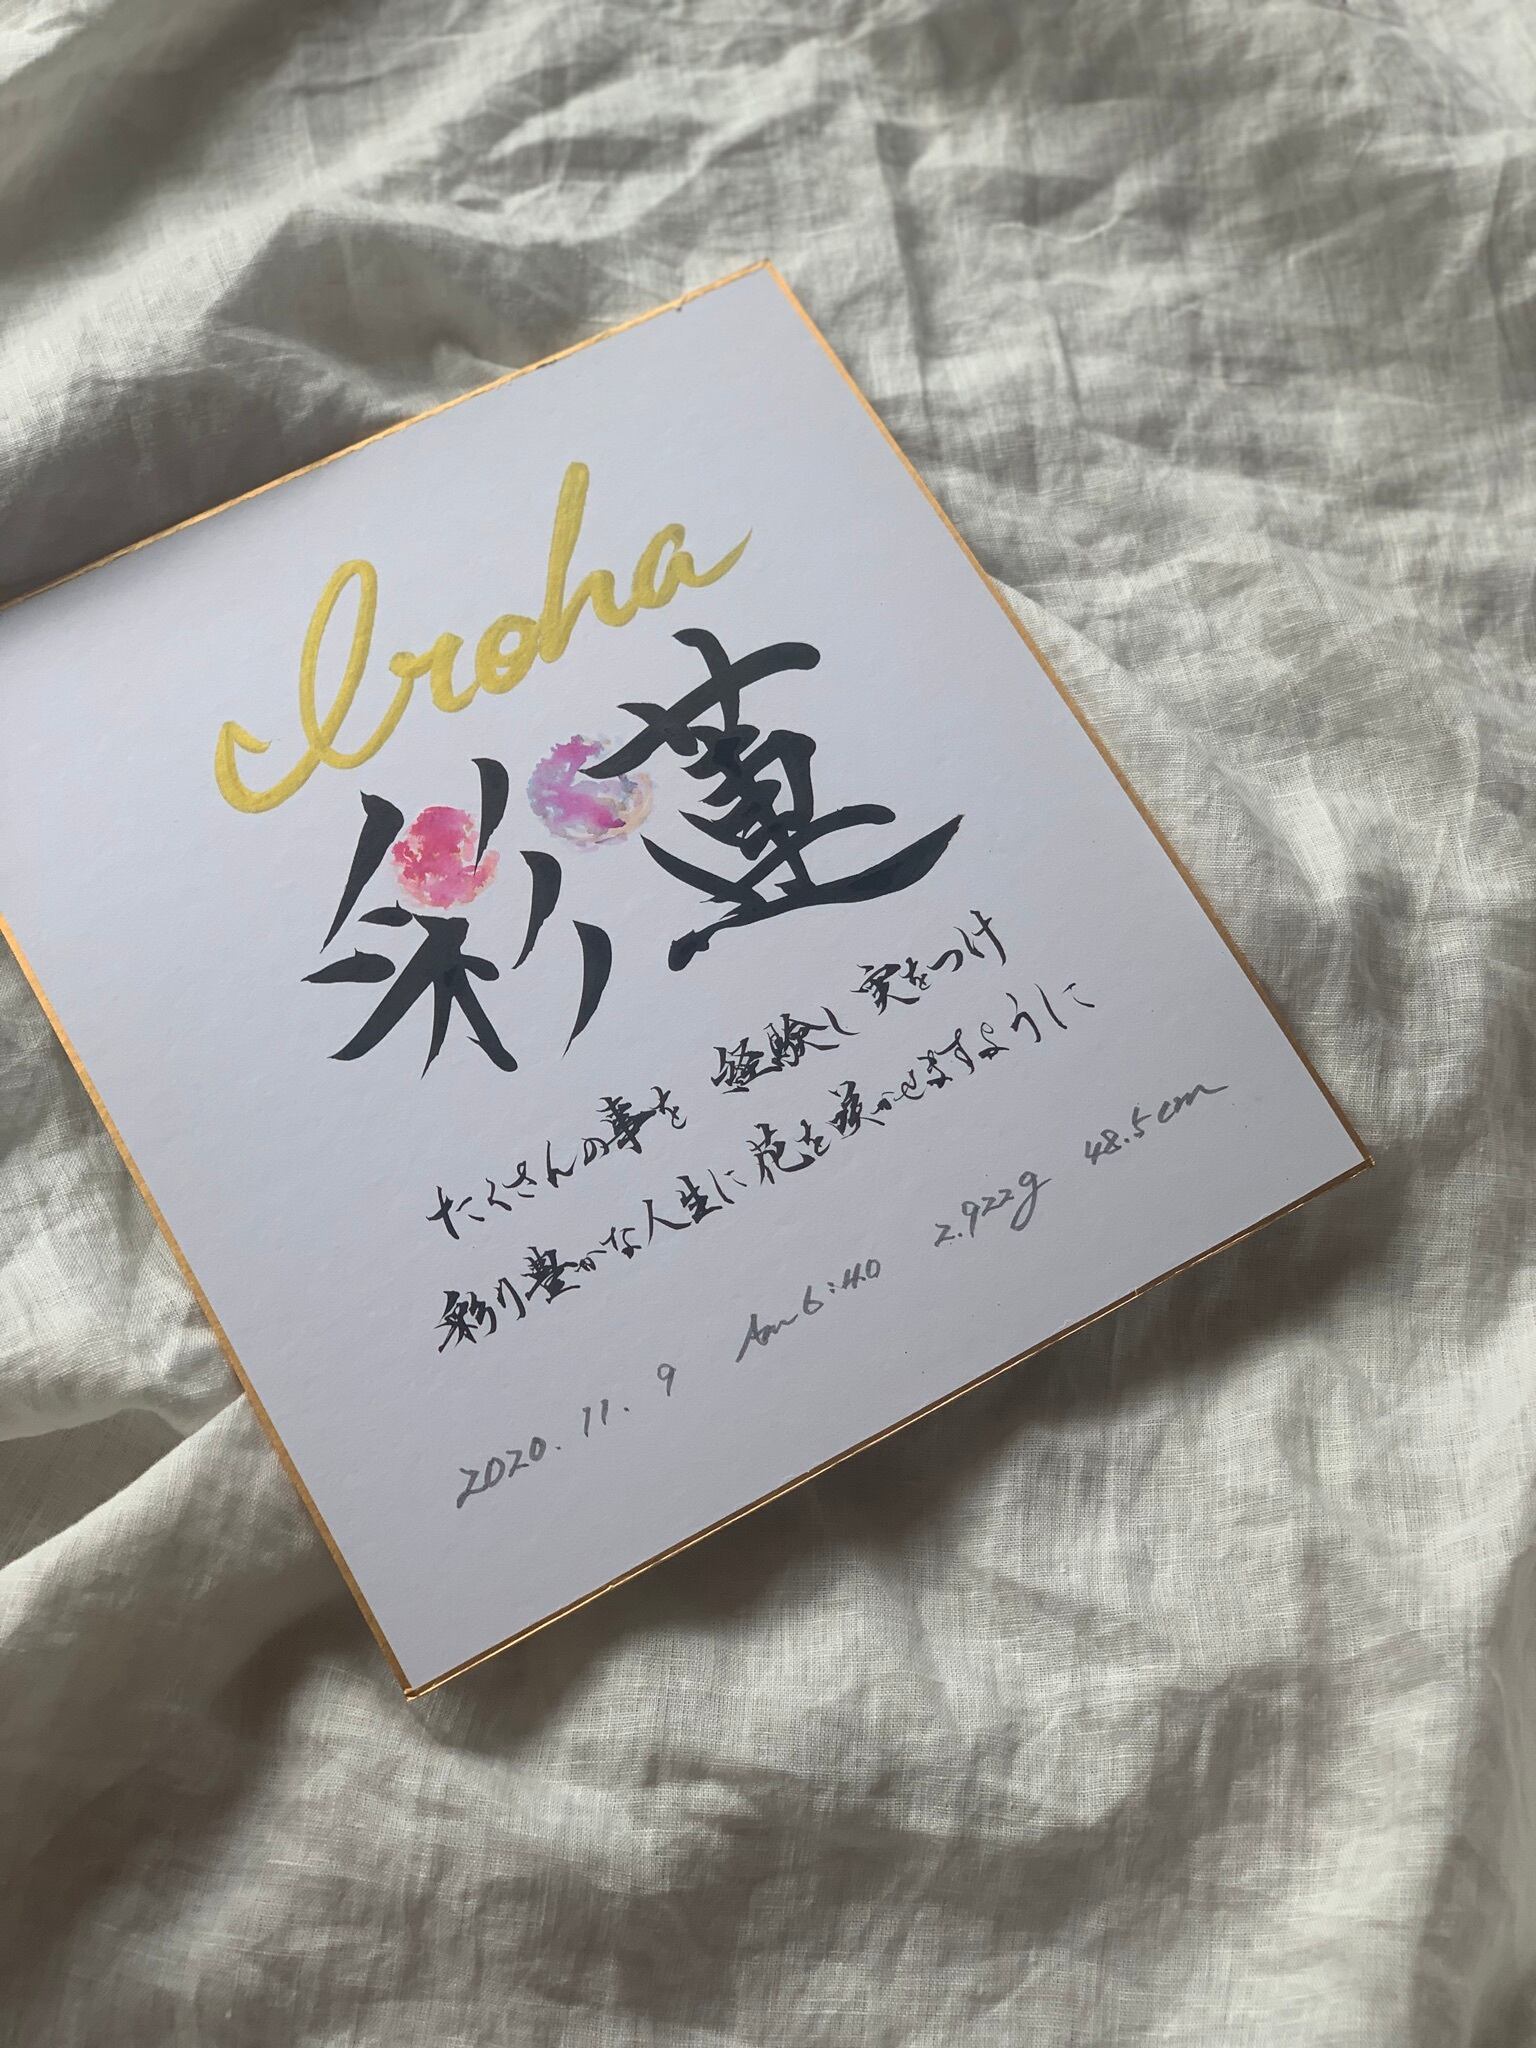 Iroha
彩蓮
たくさんの事を 経験し 実をつけ
彩り豊かな人生に花を咲かせますように
2020.11.9 Am6:40 2.922g 48.5cm